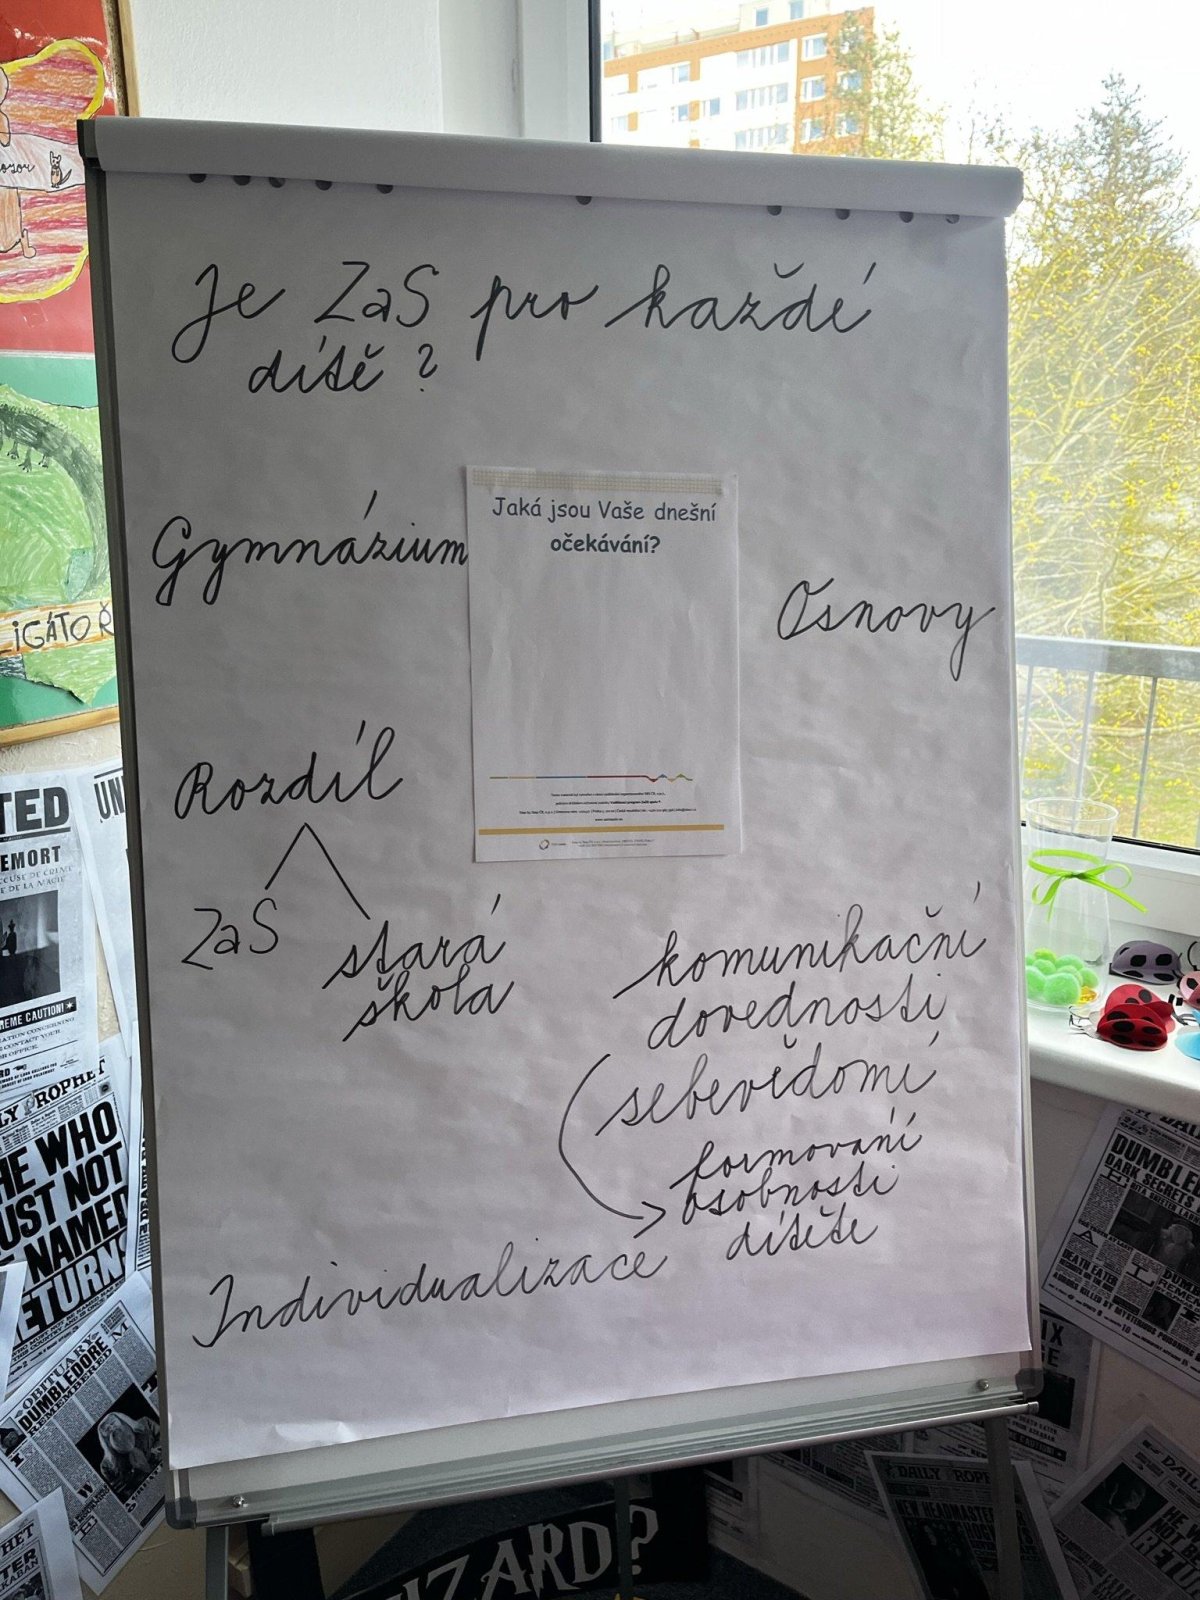 Je ZaS pro každé
dítě ?
Jaká jsou Vaše dnešní
očekávání?
Gymnázium
Osnovy
Rozdíl
ZaS
stará
škola
komunikační
dovednosti
sebevědomí
formování
osobnosti
dítěte
Individualizace
IGÁTOŘ
TED
UN
EMORT
EME CAUTION!
LY PROPHET
HE WHO
UST NOT
NAMED
ETURN
OBITUARY
DUMBLEDORE
REMEMBERED
HET
TER
KABAN
DUMBLE
DARK SECRETS
DEATH EATER
IX
GE
DAILY PROPHE
NEW HEADMASTER
HE W
NOT
RETU
IZARD?